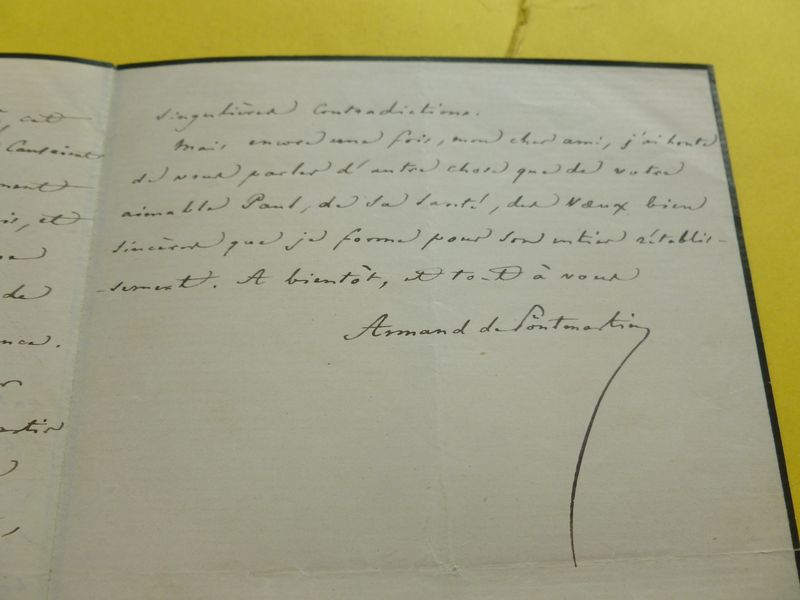 cet
Causaient
ment
et
de
singulières contradictions.
Mais encore une fois, mon cher ami, j'ai honte
de vous parler d'autre chose que de votre
aimable Paul, de sa santé, des vœux bien
sincères que je forme pour son entier rétablis-
-sement. A bientôt, et tout à vous
Armand de Pontmartin